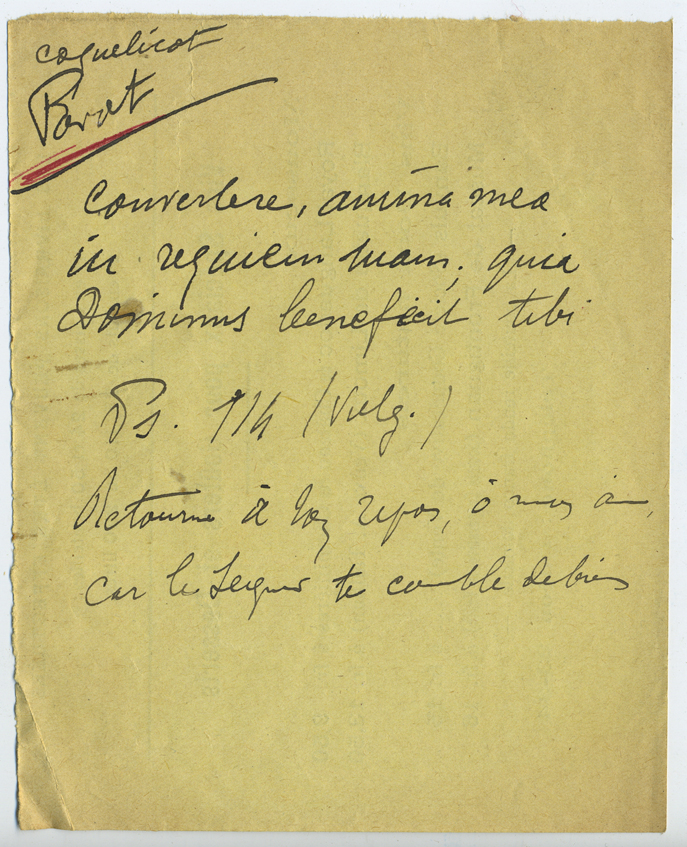 coquelicot
Pavot
Convertere, anima mea
in requiem tuam, quia
Dominus beneficit tibi
Ps. 114 (Vulg.)
Retourne à ton repos, ô mon âme,
car le Seigneur te comble de biens